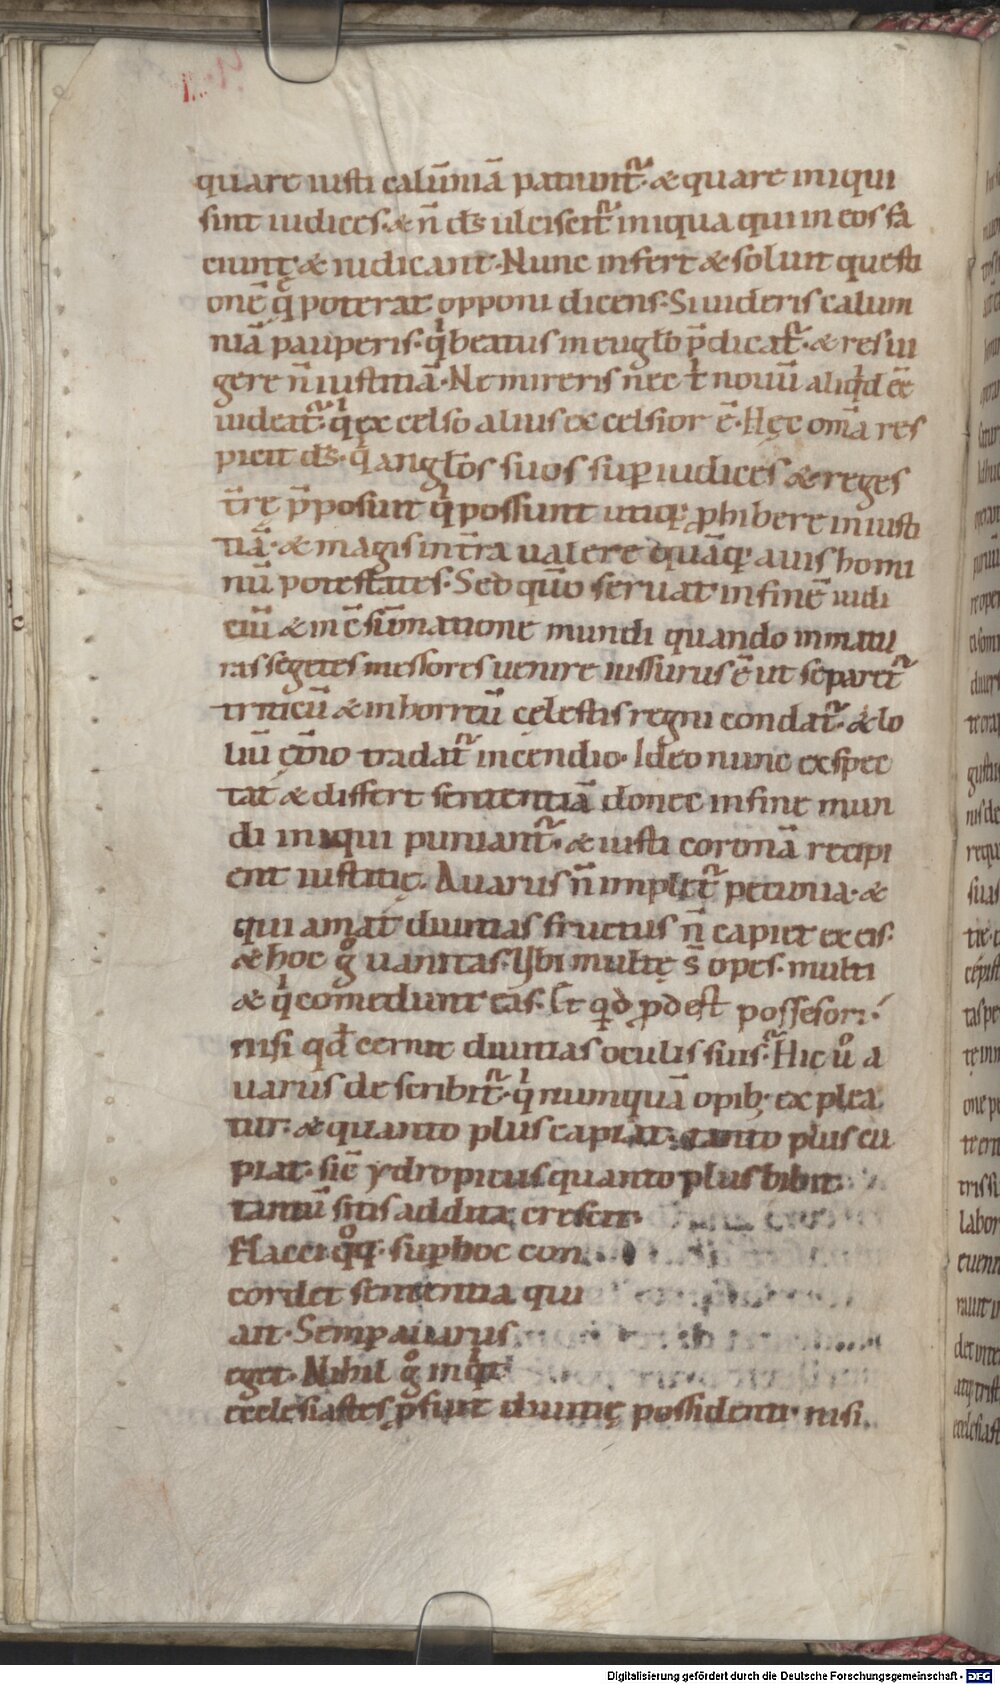 quare iusti calūniā patiunt᷑. & quare iniqui
sint iudices. & n̄ d̄s ulciscit᷑ iniqua qui in eos fa
ciunt. & iudicant. Nunc infert & soluit questi
onē q̨ poterat opponi dicens. Si uideris calum
niā pauperis. qͥ beatus in eug̅lo p̄dicat᷑. & res ui
gere n̄ iustitiā. Ne mireris nec t̄ nouū aliqͥd eē
uideat᷑. qͥ ex celso alius excelsior ē. Hęc om̄a res
picit d̄s. qͥ angl̄os suos suꝑ iudices & reges
t̄rę p̄posuit qͥ possunt utiq; ꝓhibere iniusti
tiā. & magis in t̄ra ualere quāq; auis homi
nū potestates. Sed qm̄o seruat in finē iudi
ciū & in c̄sūmatione mundi quando inmatu
ras segetes messores uenire iussurus ē ut separet᷑
triticū & in horreū cęlestis regni condat᷑. & lo
liū tradat᷑ incendio. Ideo nunc exspec
tat & differt sententiā donec in fine mun
di iniqui puniant᷑. & iusti coronā recipi
ent iustitię. Auarus n̄ implet᷑ pecunia. &
qui amat diuitias fructus n̄ capiet ex eis.
& hoc gͦ uanitas. Ubi multę s̄ opes. multi
& qͥ comedunt eas. Et qͥd ꝓdest possesori.
nisi qd̄ cernit diuitias oculis suis. Hic uͦ a
uarus describit᷑. qͥ nunquā opib; explea
tur. & quanto plus capiat. tanto plus cu
piat. sic ydropicus quanto plus bibit.
tantū sitis addita crescit.
Flacci qͦq; suꝑ hoc con
cordet sententia qui
ait. Semꝑ auarus
eget. Nihil gͦ inqͥt
ecclesiastes ꝓsunt diuitię possidenti. nisi
Digitalisierung gefördert durch die Deutsche Forschungsgemeinschaft - DFG